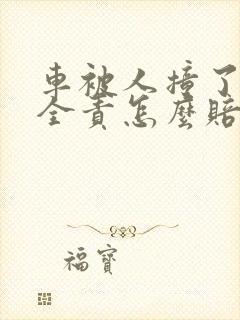 車被人撞了
全責怎麼賠
福寶